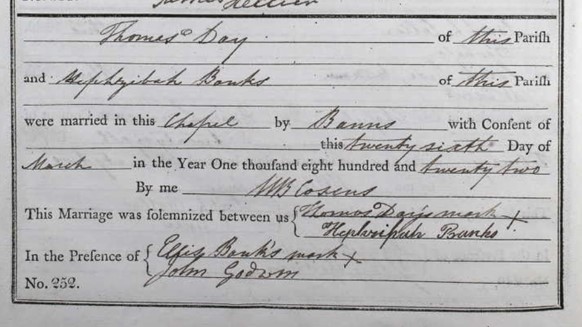 Thomas Day of this Parish
and Hephzibah Banks of this Parish
were married in this Chapel by Banns with Consent of
this twenty sixth Day of
March in the Year One thousand eight hundred and twenty two
By me WB Cosens
This Marriage was solemnized between us { Thomas Day's mark +
Hepharipah Banks
In the Presence of { Ellis Bank's mark +
John Godwin
No. 252.